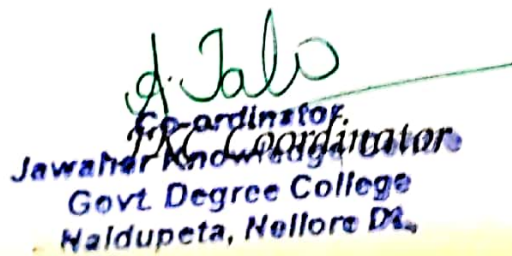 Co-ordinator
JKC Coordinator
Jawahar Knowledge
Govt. Degree College
Naidupeta, Nellore Dt.,